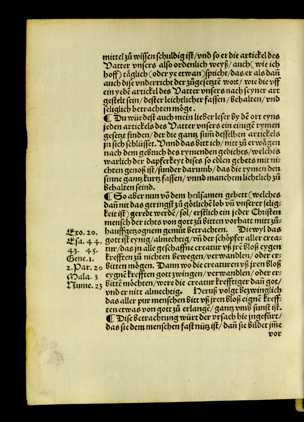 mittel zů wissen schuldig ist/vnd so er die artickel des
Vatter vnsers also ordenlich weyß/auch (wie ich
hoff) täglich (oder ye etwan) spricht/das er als dañ
auch dise vnderricht der zůgesetzte wort/wie die vff
ein yedẽ artickel des Vatter vnsers nach seyner art
gestelt sein/dester leichtlicher fassen/behalten/vnd
seliglich betrachten möge.
¶ Du würdest auch mein lieber leser by dẽ ort eyns
jeden artickels des Vatter vnsers ein eintzigẽ rymen
gesetzt finden/der die gantz sum desselben artickels
jn sich schlüsset. Vnnd das bitt ich/nit zů erwögen
nach dem gebruch des rymenden gedichtes/welchs
warlich der dapferkeyt dises so edlen gebets mit ni-
chten gemäß ist/sunder darumb/das die rymen den
sinne gantz kurtz fassen/vnnd manchem leichtlich zů
behalten seind.
¶ So aber nun võ dem heilsamen gebett (welches
dañ nit das geringst zů götlichẽ lob vñ vnserer selig-
keit ist) geredt werdẽ/sol/erstlich ein jeder Christen
mensch der ichts von gott zů bitten vorhatt mitt zů-
hauffgezognem gemüt betrachten. Die wyl das
gott ist eynig/almechtig/vñ der schöpfer aller crea-
tur/das jn alle geschaffne creatur vß jren bloß eygẽ
krefften zů nichten bewegen/verwandlen/oder er-
bitten mögen. Dann wo die creaturen vß jren bloß
eygnẽ krefften gott zwingen/verwandlen/oder er-
bittẽ möchten/were die creatur krefftiger dañ got/
vnd er nitt almechtig. Heruß volgt beywinglich
das aller pur menschen bitt vß jren bloß eignẽ kreff-
ten etwas von gott zů erlangẽ/gantz vmb sunst ist.
¶ Dise betrachtung würt der vrsach hie jngefürt/
das sie dem menschen fast nütz ist/dañ sie bildet jme
vor
Exo. 20.
Esa. 44.
43. 45.
Gene. 1.
2. Par. 20
Mala. 3
Nume. 23